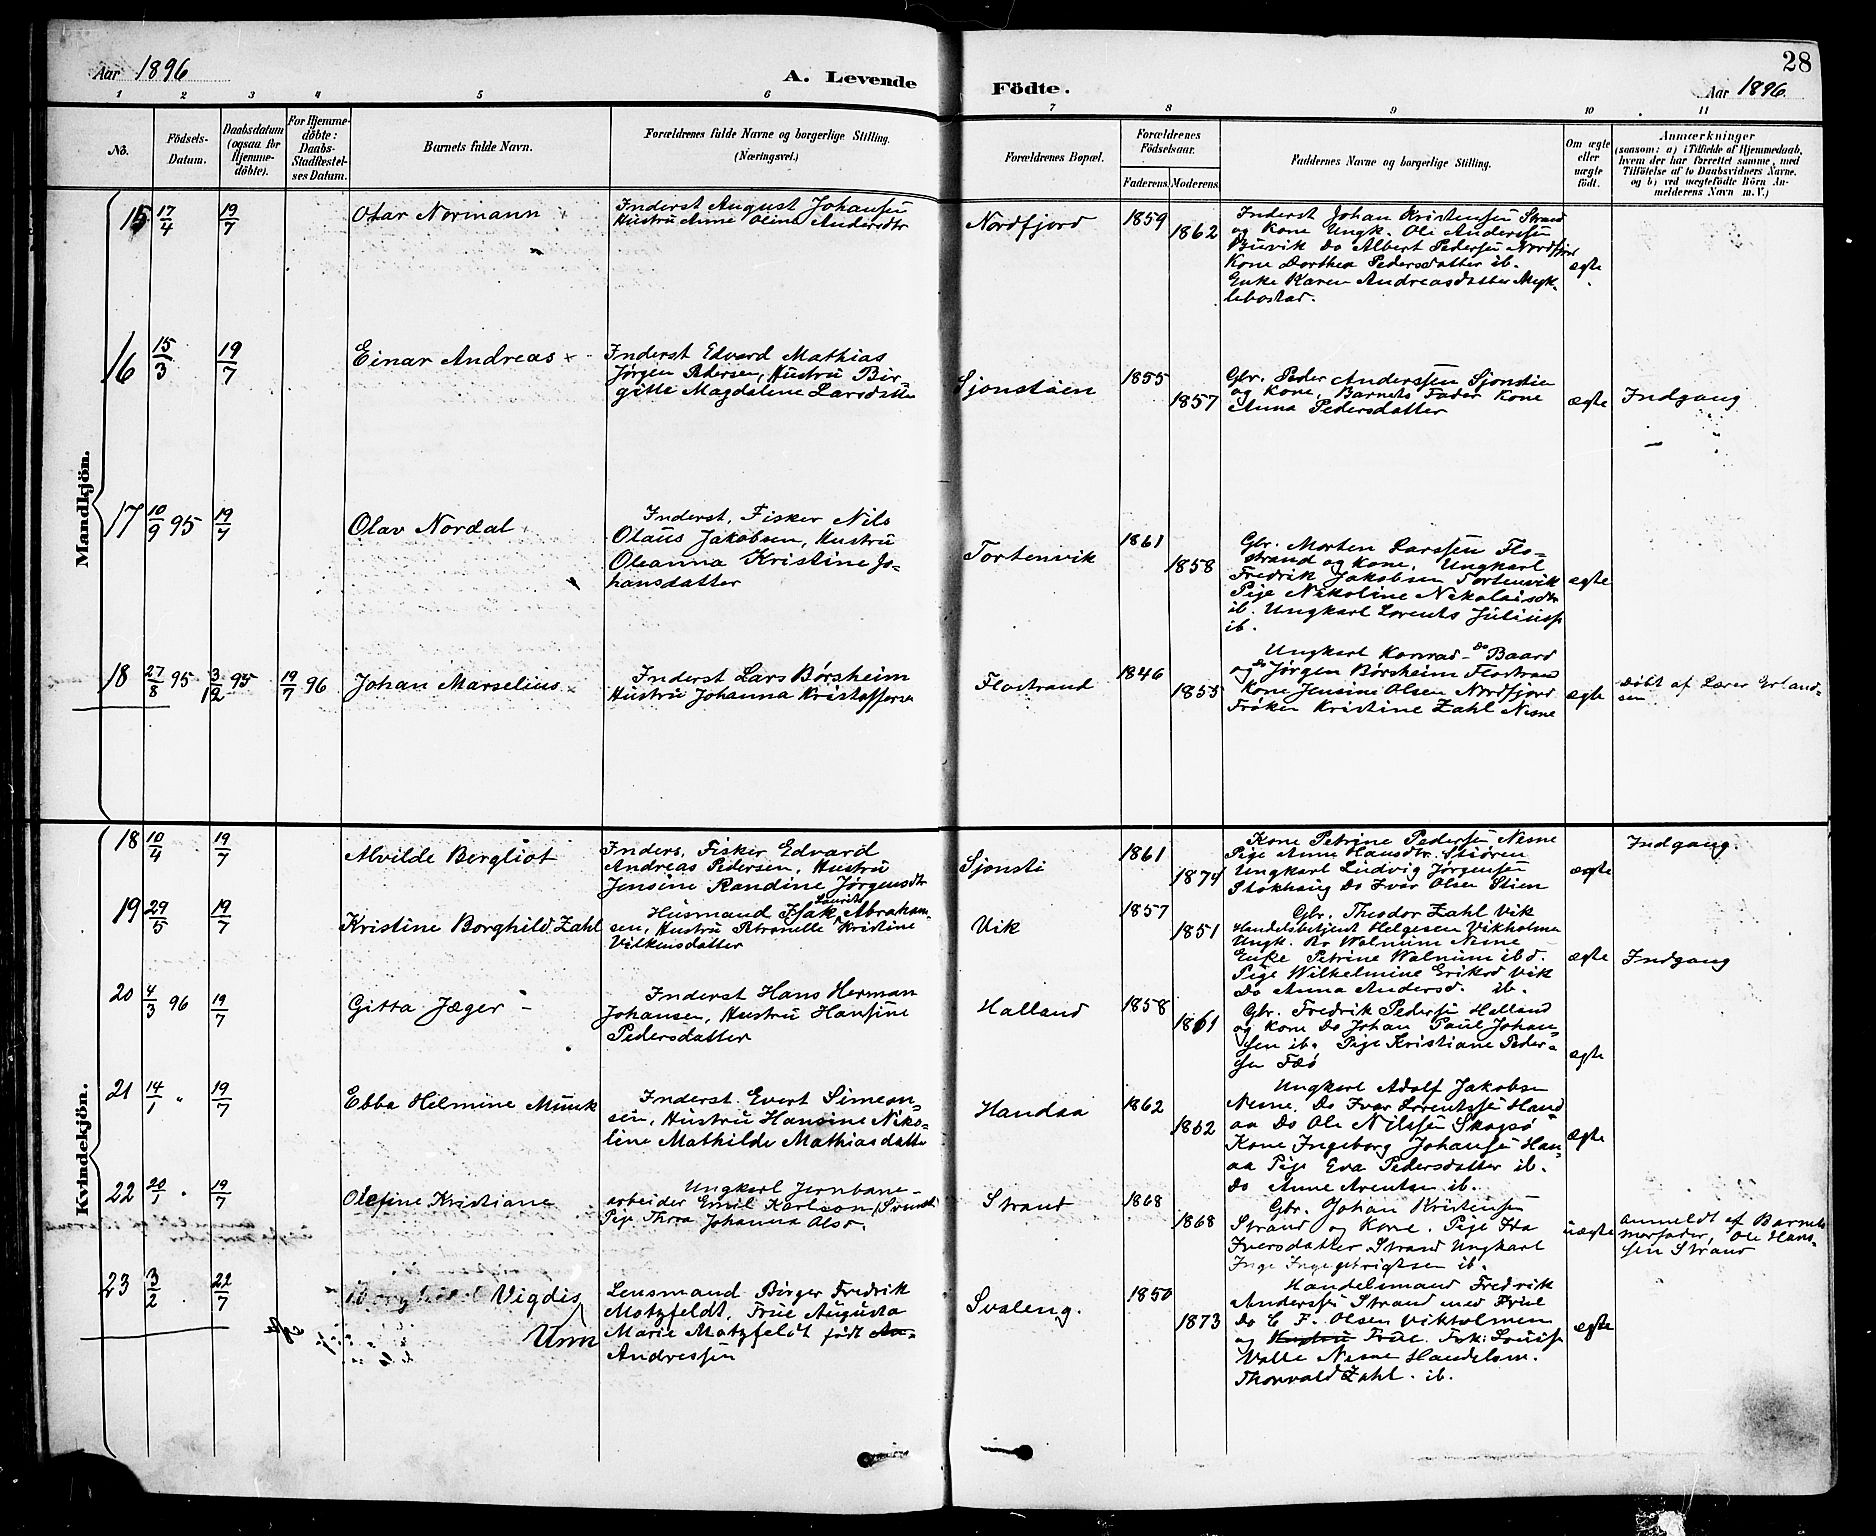 28
Aar 1896
A. Levende Födte.
Aar 1896
1 2 3 4 5 6 7 8 9 10 11
No.
Födsels-
Datum.
Daabsdatum
(ogsaa for
Hjemme-
döbte).
For Hjemme-
döbte:
Daabs-
Stadfæstel-
ses Datum.
Barnets fulde Navn.
Forældrenes fulde Navne og borgerlige Stilling.
(Næringsvei.)
Forældrenes Bopæl.
Forældrenes
Födselsaar.
Faderens.
Moderens.
Faddernes Navne og borgerlige Stilling.
Om ægte
eller
uægte
født.
Anmærkninger
(saasom: a) i Tilfælde af Hjemmedaab,
hvem der har forrettet samme, med
Tilföielse af to Daabsvidners Navne.
og b) ved uægtefödte Börn An-
melderens Navn m. V.)
Mandkjön.
15 17/4 19/7
Otar Normann
Inderst August Johansen
Hustru Anne Oline Andersdtr
Nordfjord
1859
1862
Inderst Johan Kristensen Strand
og Kone Ungk. Ole Anderssen
Buvik Do Albert Pedersen Nordfjord
Kone Dorthea Pedersdatter ib.
Enke Karen Andreasdatter Myk-
lebostad.
ægte
16 15/3 19/7
Einar Andreas
Inderst Edvard Mathias
Jørgen Petersen, Hustru Bir
gitte Magdalene Larsdatter
Sjonstöen
1855
1857
Gbr. Peder Anderssen Sjonstien
og Kone, Barnets Fader Kone
Anna Pedersdatter
ægte
Indgang
17 10/9 95 19/7
Olav Nordal
Inderst, Fisker Nils
Olaus Jakobsen, Hustru
Oleanna Kristine Jo-
hansdatter
Tortenvik
1861
1858
Gbr. Morten Larssen Flo-
strand og Kone, Ungkarl
Fredrik Jakobsen Tortenvik
Pige Nikoline Nikolaisdtr
ib. Ungkarl Lorents Juliussn
ib.
ægte
18 27/8 95 3/12 95 19/7 96
Johan Marselius
Inderst Lars Børsheim
Hustru Johanna Kristoffersen
Flostrand
1846
1855
Ungkarl Konrad - Do Baard
og Do Jørgen Børsheim Flostrand
Kone Jensine Olsen Nordfjord
Frøken Kristine Zahl Nesne
ægte
Døbt af Lærer Erland-
sen
Kvindekjön.
18 10/4 19/7
Alvilde Bergliot
Inders, Fisker Edvard
Andreas Pedersen, Hustru
Jensine Randine Jørgensdtr
Sjonsti
1861
1874
Kone Petrine Pedersen Nesne
Pige Anne Hansdtr. Stiören
Ungkarl Ludvig Jørgensen
Stokhaug Do Ivar Olsen Stien
ægte
Indgang.
19 29/5 19/7
Kristine Borghild Zahl
Husmand Isak Laurits Abraham-
sen, Hustru Petronelle Kristine
Vilkensdatter
Vik
1857
1851
Gbr. Theodor Zahl Vik
Handelsbetjent Helgesen Vikholmen
Ungk. Walnum Nesne
Enke Petrine Walnum ibd.
Pige Wilhelmine Eriksd Vik
Do Anna Andersd. ib.
ægte
Indgang
20 4/3 96 19/7
Gitta Jæger
Inderst Hans Herman
Johansen, Hustru Hansine
Pedersdatter
Halland
1858
1861
Gbr. Fredrik Pedersen Halland
og Kone Do Johan Paul Johan-
sen ib. Pige Kristiane Peder-
sen Fæö
ægte
21 14/1 " 19/7
Ebba Helmine Munk
Inderst Evert Simeon-
sen, Hustru Hansine Niko-
line Mathilde Mathiasdatter
Handaa
1862
1862
Ungkarl Adolf Jakobsen
Nesne. Do Ivar Lorentssen Hand
aa Do Ole Nilssen Skogsö
Kone Ingeborg Johansen Han-
aa Pige Eva Pedersdatter ib.
Do Anne Arentsen ib.
ægte
22 20/1 " 19/7
Olefine Kristiane
Ungkarl Jernbane-
arbeider Emil Karlson (Svensk)
Pige Thora Johanna Olsd.
Strand
1868
1868
Gbr. Johan Kristensen
Strand og Kone. Pige Ida
Iversdatter Strand Ungkarl
Inge Ingebrigtsen ib.
uægte
Anmeldt af Barnets
morfader, Ole Hans-
sen Strand
23 3/2 22/7
Vigdis
Unn
Lensmand Birger Fredrik
Motzfeldt, Frue Augusta
Marie Motzfeldt født An-
Andressen
Svaleng.
1850
1873
Handelsmand Fredrik
Anderssen Strand med Frue
Do C. F. Olsen Vikholmen
og Hustru Frue. Frk: Louise
Walle Nesne Handelsm.
Thorvald Zahl. ib.
ægte